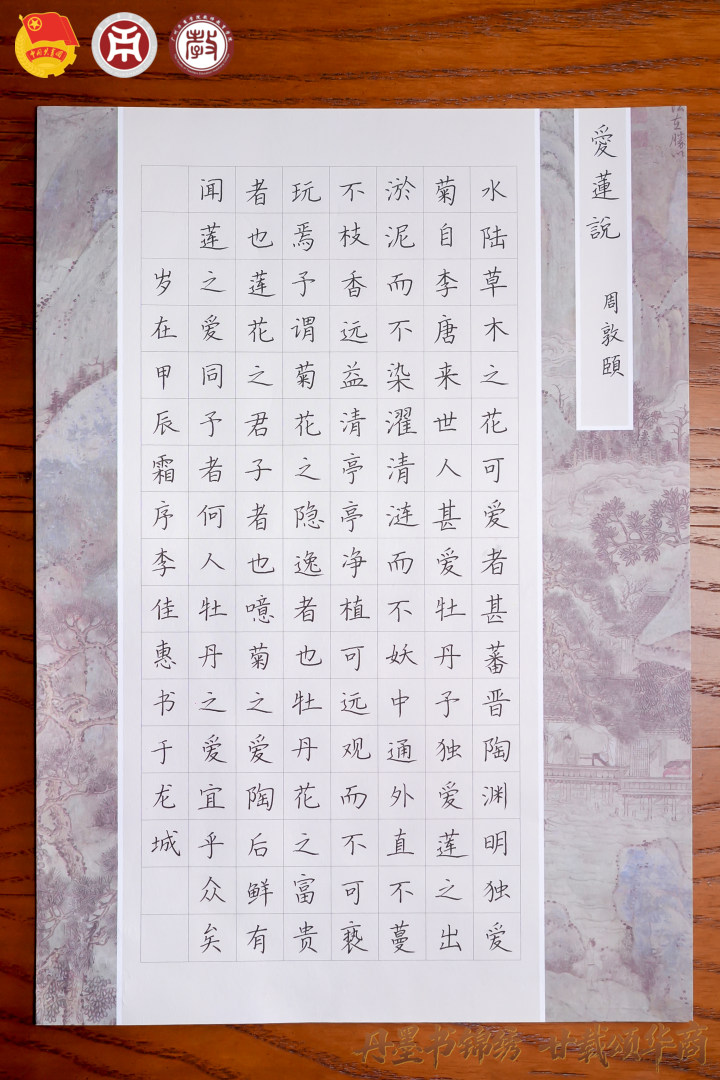 愛蓮說
周敦頤
水陆草木之花可爱者甚蕃晋陶渊明独爱
菊自李唐来世人甚爱牡丹予独爱莲之出
淤泥而不染濯清涟而不妖中通外直不蔓
不枝香远益清亭亭净植可远观而不可亵
玩焉予谓菊花之隐逸者也牡丹花之富贵
者也莲花之君子者也噫菊之爱陶后鲜有
闻莲之爱同予者何人牡丹之爱宜乎众矣
岁在甲辰霜序李佳惠书于龙城
中国共青团
丹墨书锦绣 廿载颂华商